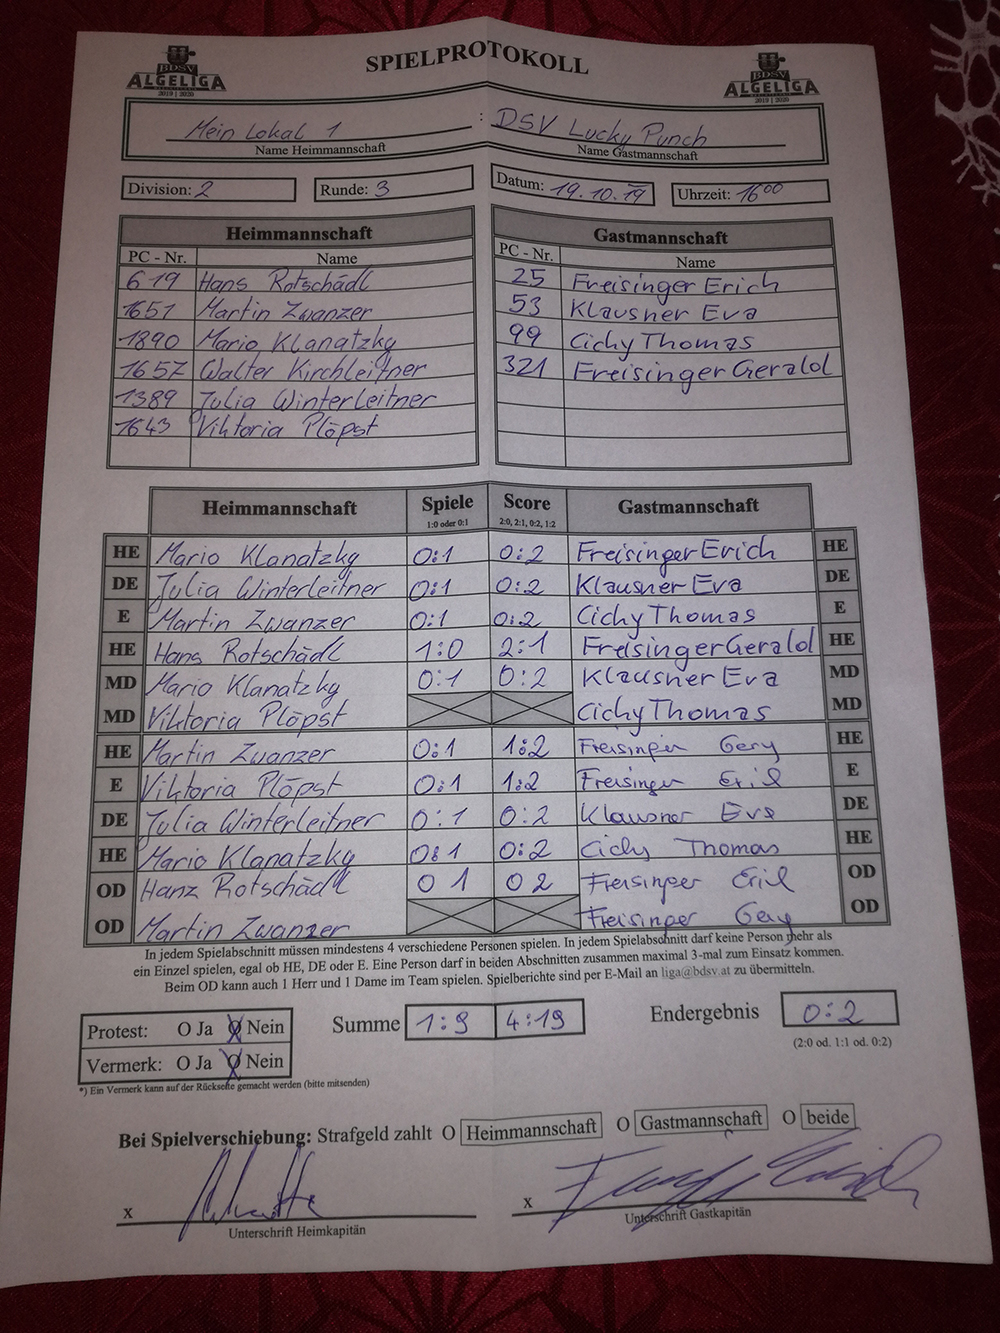 SPIELPROTOKOLL
BDSV
ALGELIGA
2019 | 2020
BDSV
ALGELIGA
2019 | 2020
Mein Lokal 1 : DSV Lucky Punch
Name Heimmannschaft Name Gastmannschaft
Division: 2 Runde: 3 Datum: 19.10.19 Uhrzeit: 16 00
Heimmannschaft Gastmannschaft
PC - Nr. Name PC - Nr. Name
619 Hans Rotschädl 25 Freisinger Erich
1651 Martin Zwanzer 53 Klausner Eva
1890 Mario Klanatzky 99 Cichy Thomas
1657 Walter Kirchleitner 321 Freisinger Gerald
1389 Julia Winterleitner
1643 Viktoria Plöpst
Heimmannschaft Spiele Score Gastmannschaft
1:0 oder 0:1 2:0, 2:1, 0:2, 1:2
HE Mario Klanatzky 0:1 0:2 Freisinger Erich HE
DE Julia Winterleitner 0:1 0:2 Klausner Eva DE
E Martin Zwanzer 0:1 0:2 Cichy Thomas E
HE Hans Rotschädl 1:0 2:1 Freisinger Gerald HE
MD Mario Klanatzky 0:1 0:2 Klausner Eva MD
MD Viktoria Plöpst Cichy Thomas MD
HE Martin Zwanzer 0:1 1:2 Freisinger Gery HE
E Viktoria Plöpst 0:1 1:2 Freisinger Erich E
DE Julia Winterleitner 0:1 0:2 Klausner Eva DE
HE Mario Klanatzky 0:1 0:2 Cichy Thomas HE
OD Hanz Rotschädl 0 1 0 2 Freisinger Erich OD
OD Martin Zwanzer Freisinger Gery OD
In jedem Spielabschnitt müssen mindestens 4 verschiedene Personen spielen. In jedem Spielabschnitt darf keine Person mehr als
ein Einzel spielen, egal ob HE, DE oder E. Eine Person darf in beiden Abschnitten zusammen maximal 3-mal zum Einsatz kommen.
Beim OD kann auch 1 Herr und 1 Dame im Team spielen. Spielberichte sind per E-Mail an liga@bdsv.at zu übermitteln.
Protest: O Ja O Nein Summe 1:9 4:19 Endergebnis 0:2
Vermerk: O Ja O Nein (2:0 od. 1:1 od. 0:2)
*) Ein Vermerk kann auf der Rückseite gemacht werden (bitte mitsenden)
Bei Spielverschiebung: Strafgeld zahlt O Heimmannschaft O Gastmannschaft O beide
x x
Unterschrift Heimkapitän Unterschrift Gastkapitän